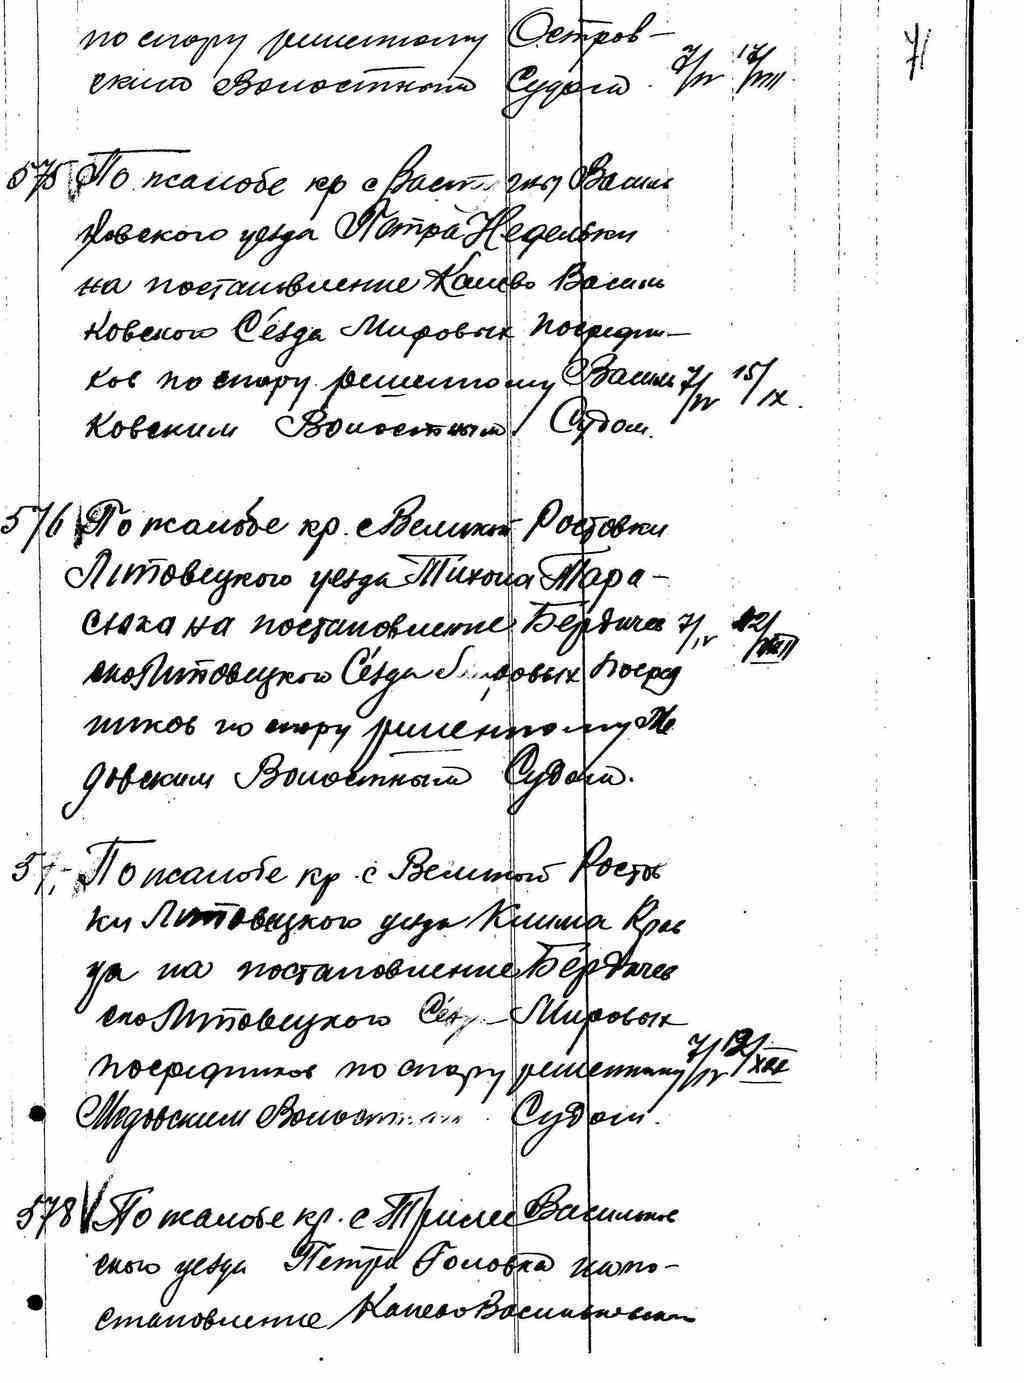 71
по спору решенному Остров-
ским Волостным Судом. 7/IV 17/VIII
575 По жалобе кр с Васильков
ковского уезда Петра Недельки
на постановление Канево Василь
ковского Съезда Мировых посредни-
ков по спору решенному Василь 7/IV 15/IX.
ковским Волостным Судом.
576 По жалобе кр. с Великой Ростовки
Липовецкого уезда Тихона Тара-
сюка на постановление Бердичев 7/IV 12/VIII
ско Липовецкого Съезда Мировых Посред
ников по спору решенному Ме
довским Волостным Судом.
57 По жалобе кр. с Великой Ростов
ки Липовецкого уезда Клима Крав
ца на постановление Бердичев
ско Липовецкого Съезда Мировых
посредников по спору решенному 7/IV 12/
Медовским Волостным Судом.
578 По жалобе кр. с Трилес Васильков
ского уезда Петра Головка на по-
становление Канево Васильковского